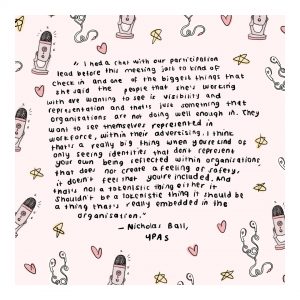 "I had a chat with our participation
lead before this meeting just to kind of
check in and one of the biggest things that
she said the people that she's working
with are wanting to see is visibility and
representation and that's just something that
organisations are not doing well enough in. They
want to see themselves represented in
workforce, within their advertising. I think
that's a really big thing when you're kind of
only seeing identities that don't represent
your own being reflected within organisations
that does not create a feeling of safety,
it doesn't feel that you're included. And
that's not a tokenistic thing either it
shouldn't be a tokenistic thing it should be
a thing that's really embedded in the
organisation."
- Nicholas Ball,
YPAS